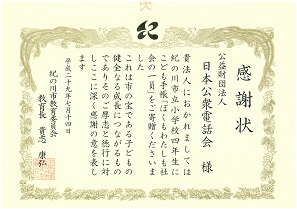 感謝状
公益財団法人
日本公衆電話会 様
貴法人におかれましては
紀の川市立小学校四年生に
こども手帳「ぼくもわたしも社
会の一員」をご寄贈くださいま
した
これは市の宝である子どもの
健全なる成長につながるもの
でありそのご厚志と徳行に対
しここに深く感謝の意を表し
ます
平成二十九年七月十四日
紀の川市教育委員会
教育長 貴志 康弘